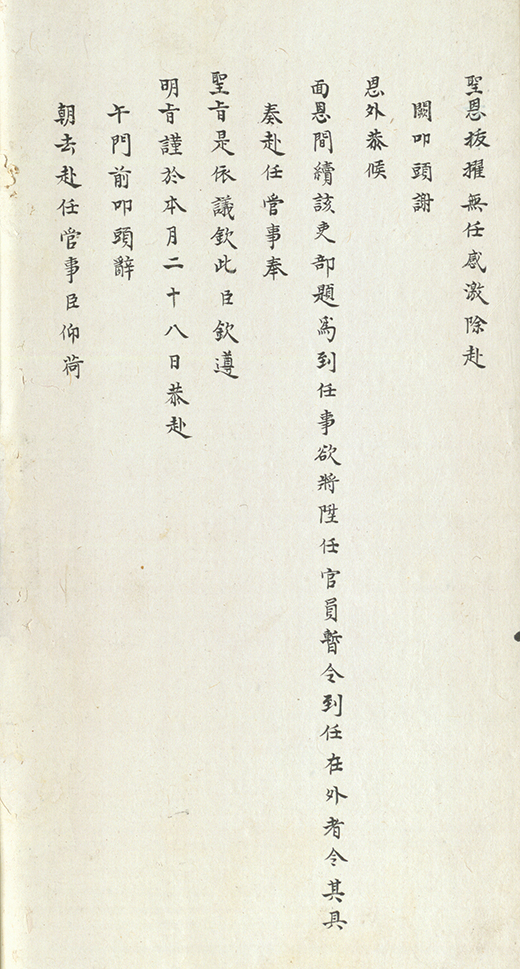 聖恩拔擢無任感激除赴
闕叩頭謝
恩外恭候
面恩間續該吏部題為到任事欲將陞任官員暫令到任在外者令其具
奏赴任管事奉
聖旨是依議欽此臣欽遵
明旨謹於本月二十八日恭赴
午門前叩頭辭
朝去赴任管事臣仰荷